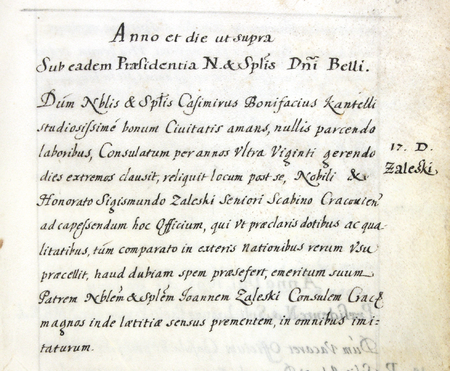 Anno et die ut supra
Sub eadem Præsidentia N. & Splīs Dn̄i Belli.
Dum Nblis & Splīs Casimirus Bonifacius Kantelli
studiosissimé bonum Civitatis amans, nullis parcendo
laboribus, Consulatum per annos Vltra Viginti gerendo
dies extremos clausit, reliquit locum post se, Nobili &
Honorato Sigismundo Zaleski Seniori Scabino Cracovien̄
ad capessendum hoc Officium, qui Vt præclaris dotibus ac qua-
litatibus, tùm comparato in exteris nationibus rerum Vsu
præcellit, haud dubiam spem præsefert, emeritum suum
Patrem Nblem̄ & Splem̄ Joannem Zaleski Consulem Crac̄
magnos inde lætitiæ sensus prementem, in omnibus imi-
taturum.
17. D.
Zaleski